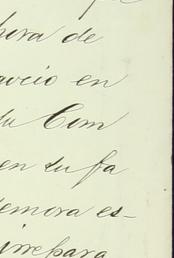 hora de
avcio en
su Com
en su fa
demora es-
irrepara